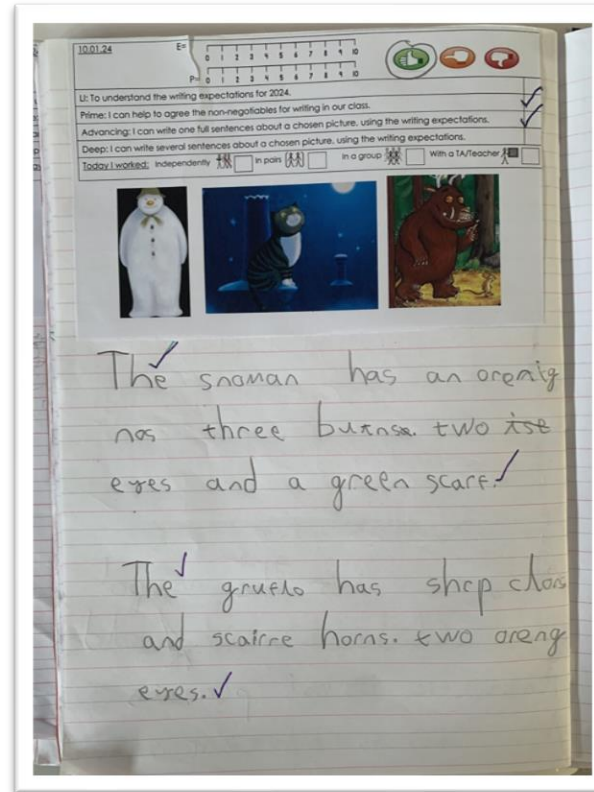 10.01.24
E= 0 1 2 3 4 5 6 7 8 9 10
P= 0 1 2 3 4 5 6 7 8 9 10
LI: To understand the writing expectations for 2024.
Prime: I can help to agree the non-negotiables for writing in our class.
Advancing: I can write one full sentences about a chosen picture, using the writing expectations.
Deep: I can write several sentences about a chosen picture, using the writing expectations.
Today I worked: Independently In pairs In a group With a TA/Teacher
The snoman has an orenig
nos three butnse. two ise
eyes and a green scarf.
The gruflo has shcp clors
and scairre horns. two oreng
eyes.